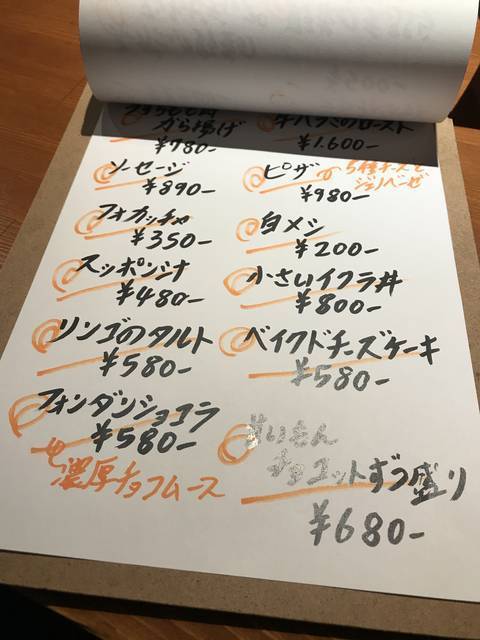 から揚げ
¥780-
牛ハラミのロースト
¥1.600-
ソーセージ
¥890-
ピザ
¥980-
5種チーズと
ジェノベーゼ
フォカッチャ
¥350-
白メシ
¥200-
スッポンシナ
¥480-
小さいイクラ丼
¥800-
リンゴのタルト
¥580-
ベイクドチーズケーキ
¥580-
フォンダンショコラ
¥580-
濃厚チョコムース
甘いもん
チョコットずつ盛り
¥680-